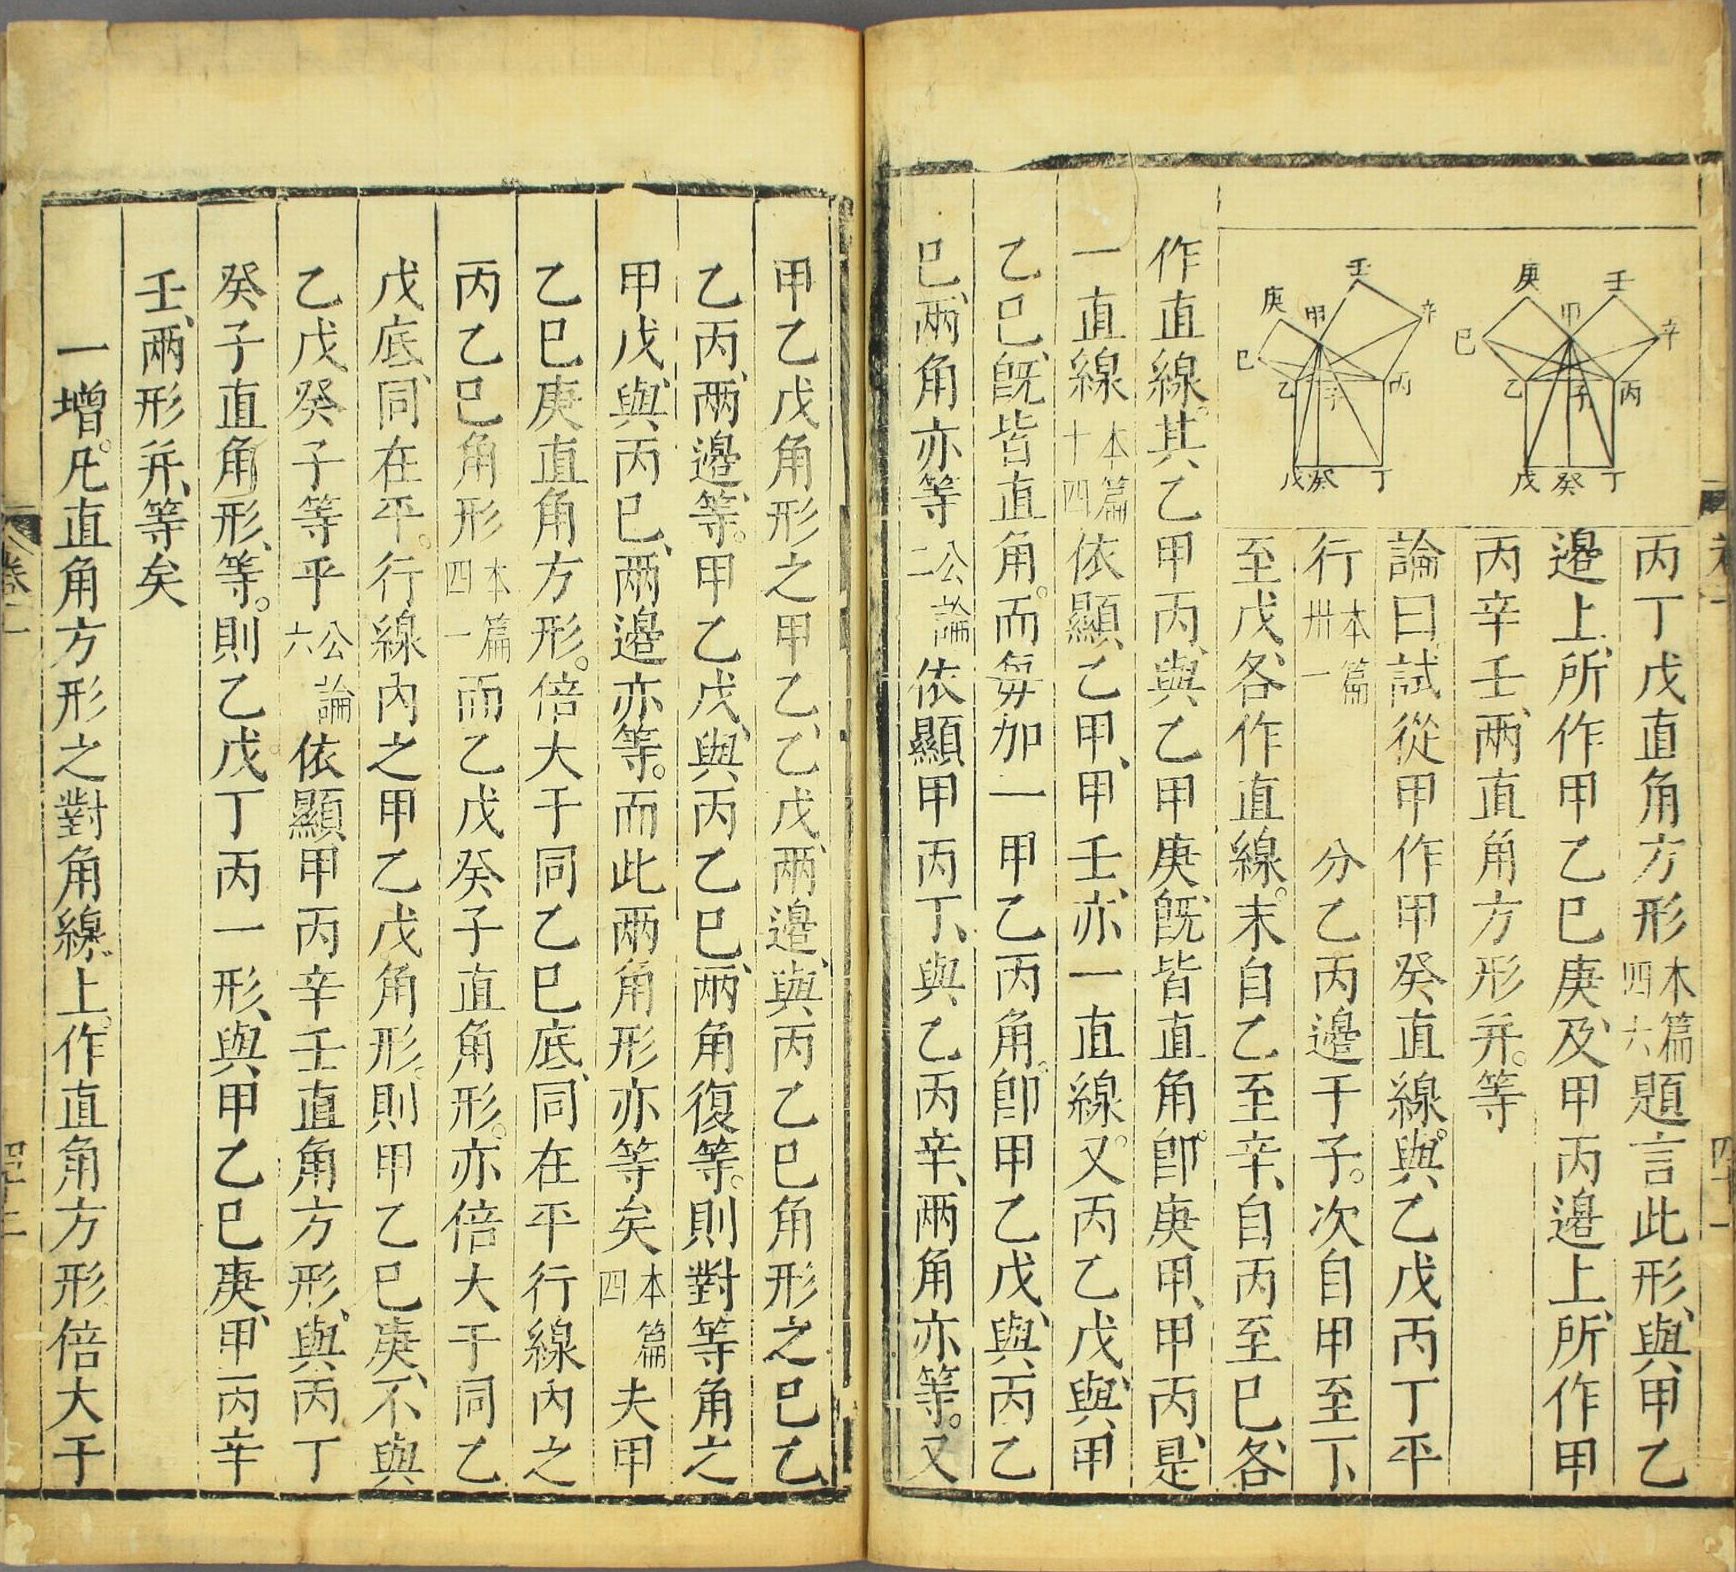 庚 壬 甲 辛 巳 乙 子 丙 戊 癸 丁
壬 庚 甲 辛 巳 乙 子 丙 戊 癸 丁
丙丁戊直角方形本篇四六題言此形、與甲乙
邊上、所作甲乙巳庚、及甲丙邊上、所作甲
丙辛壬、兩直角方形并。等
論曰、試從甲作甲癸直線。與乙戊丙丁平
行本篇卅一分乙丙邊于子。次自甲至丁、
至戊、各作直線。末自乙至辛、自丙至巳、各
作直線。其乙甲丙、與乙甲庚、旣皆直角。卽庚甲、甲丙、是
一直線本篇十四依顯、乙甲、甲壬、亦一直線。又丙乙戊、與、甲
乙巳、旣皆直角。而每加一甲乙丙角。卽甲乙戊、與、丙乙
巳、兩角亦等公論二依顯甲丙丁、與乙丙辛、兩角亦等。又
甲乙戊角形之甲乙、乙戊、兩邊、與丙乙巳角形之巳乙、
乙丙、兩邊等。甲乙戊、與丙乙巳、兩角復等。則對等角之
甲戊、與、丙巳、兩邊亦等。而此兩角形亦等矣本篇四夫甲
乙巳庚直角方形。倍大于同乙巳底、同在平行線內之
丙乙巳角形本篇四一而乙戊癸子直角形。亦倍大于同乙
戊底、同在平。行線內之甲乙戊角形。則甲乙巳庚、不與
乙戊癸子等乎公論六依顯、甲丙辛壬直角方形、與丙丁
癸子直角形、等。則乙戊丁丙一形、與甲乙巳庚、甲丙辛
壬、兩形并、等矣
一增。凡直角方形之對角線上。作直角方形倍大于
卷一
四十二